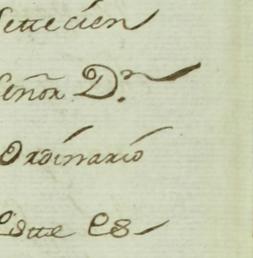 Settecien
Señor D.n
Ordinario
Este es